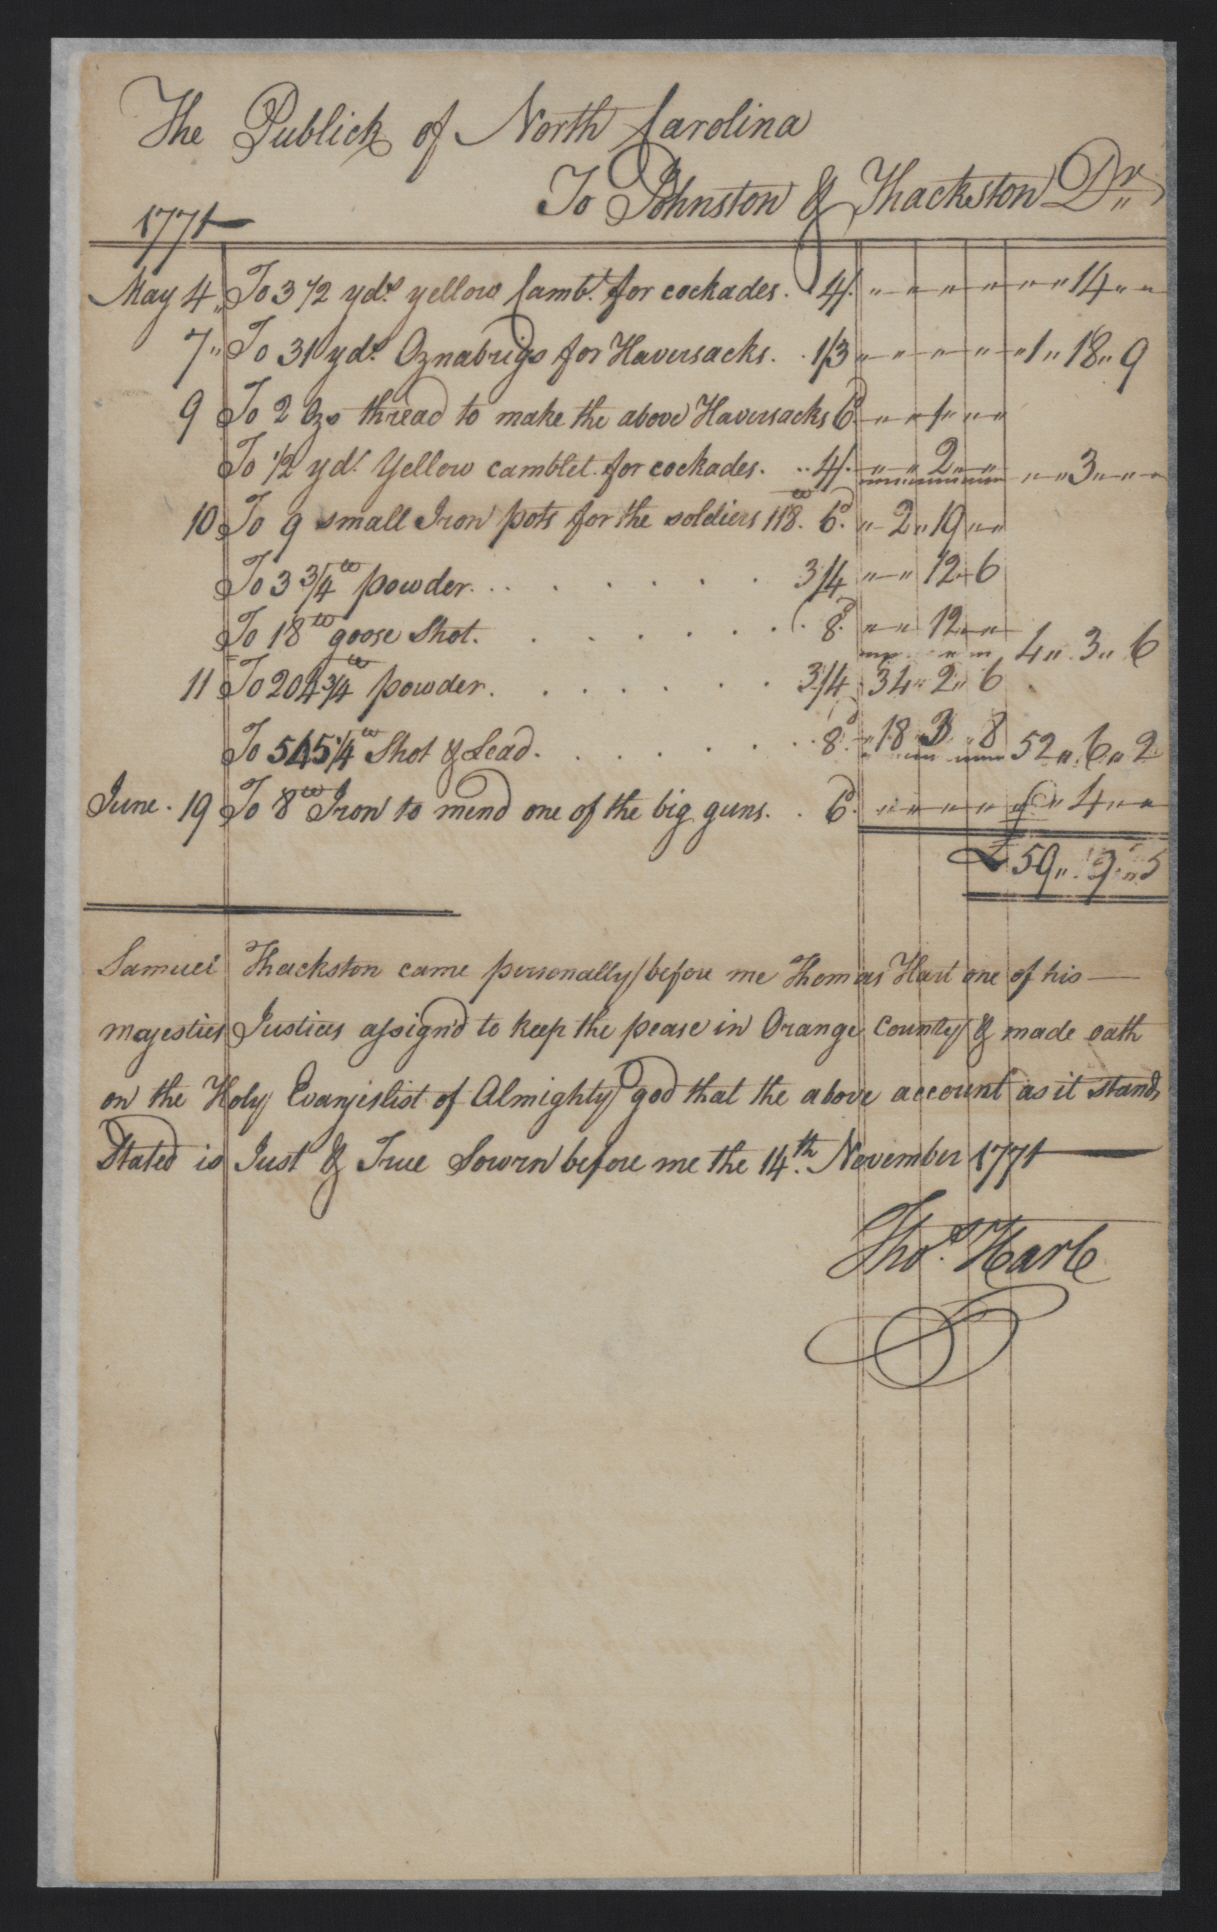 The Publick of North Carolina
To Johnston & Thackston Dr
1771
May 4 To 3 1/2 yds yellow Cambt. for cockades. 4/. 14
7 To 31 yds. Oznabrigs for Haversacks. 1/3 1 18 9
9 To 2 Ozs thread to make the above Haversacks 6d 1
To 1/2 yd. Yellow camblet for cockades. 4/. 2 3
10 To 9 small Iron pots for the soldiers 118w. 6d. 2 19
To 3 3/4w powder 3/4 12 6
To 18w goose Shot. 8d. 12 4 3 6
11 To 204 3/4w powder. 3/4 34 2 6
To 545 1/4w Shot & Lead. 8d. 18 3 8 52 6 2
June 19 To 8w Iron to mend one of the big guns. 6d. 4
£ 59 9 5
Samuel Thackston came personally before me Thomas Hart one of his
majesties Justices assign'd to keep the pease in Orange County & made oath
on the Holy Evanjeslist of Almighty god that the above account as it stands
Stated is Just & True Sowrn before me the 14th. November 1771
Thos. Hart